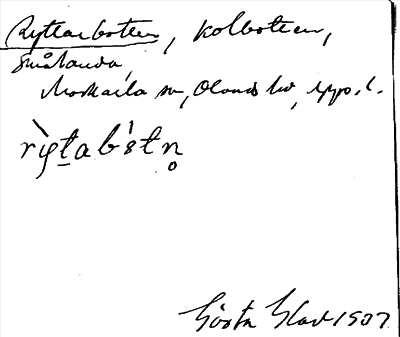 Ryttarbotten, Kolbotten,
Småhanda,
Morkarla sn, Olands hd, Upps. l.
rỳt̲abs̍tn̥
Gösta Glad 1907